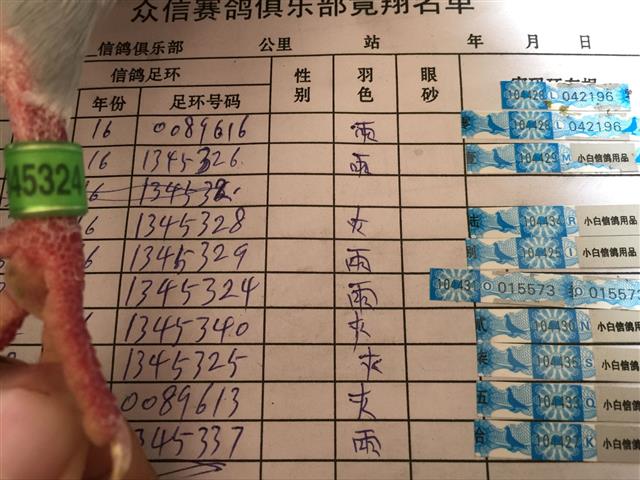 众信赛鸽俱乐部竞翔名单
信鸽俱乐部 公里 站 年 月 日
信鸽足环 性别 羽色 眼砂
年份 足环号码
104428 L 042196
16 0089616 雨 104428 L 042196
16 1345326 雨 104429 M 小白信鸽用品
45324
16
1345328 灰 陆 104434 R 小白信鸽用品
6 1345329 雨 别 104425 I 小白信鸽用品
1345324 雨 10443 O 015573 O 015573
1345340 灰 贰 104430 N 小白信鸽
1345325 灰 柒 104435 S 小白信鸽
0089613 灰 五 104433 Q 小白信鸽
345337 雨 台 104427 K 小白信鸽